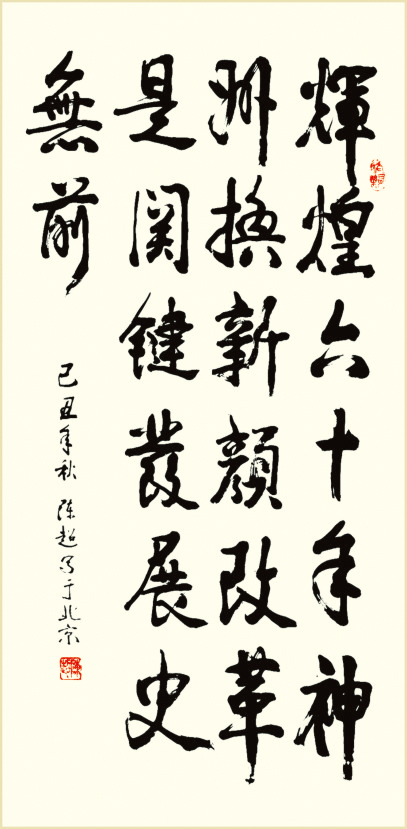 輝煌六十年神
州換新顏改革
是関键發展史
無前
己丑年秋 陈超写于北京